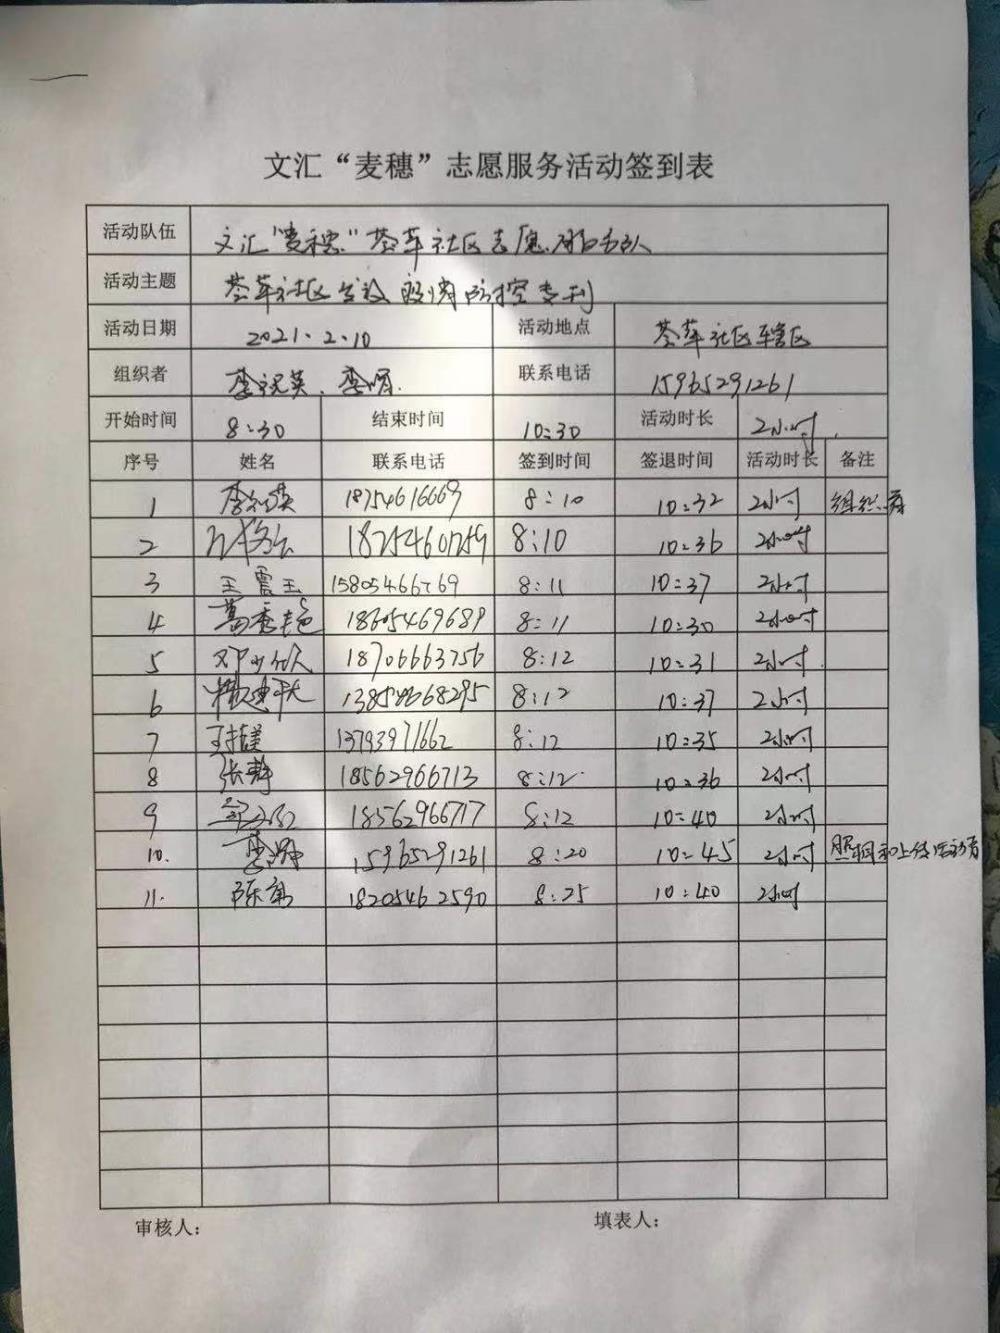 文汇“麦穗”志愿服务活动签到表
活动队伍 文汇“麦穗”荟萃社区志愿服务队
活动主题 荟萃社区发放疫情防控专刊
活动日期 2021.2.10 活动地点 荟萃社区辖区
组织者 李祝英、李娟 联系电话 15965291261
开始时间 8:30 结束时间 10:30 活动时长 2小时
序号 姓名 联系电话 签到时间 签退时间 活动时长 备注
1 李祝英 18754616669 8:10 10:32 2小时 组织者
2 18254601759 8:10 10:36 2小时
3 王雪玉 15805466769 8:11 10:37 2小时
4 葛秀艳 18605469689 8:11 10:30 2小时
5 18706663756 8:12 10:31 2小时
6 8:12 10:37 2小时
7 13793971662 8:12 10:35 2小时
8 张静 18562966713 8:12 10:36 2小时
9 18562966717 8:12 10:40 2小时
10. 李娟 15965291261 8:20 10:45 2小时 照相和上传活动者
11. 18205462590 8:25 10:40 2小时
审核人： 填表人：